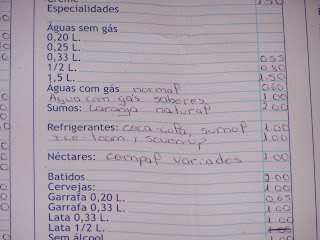 Creme 1.50
Especialidades
Águas sem gás
0,20 L.
0,25 L.
0,33 L. 0.55
1/2 L. 0.80
1,5 L. 1.50
Águas com gás normal 0.60
Agua com gás sabores 1.00
Sumos: Laranja natural 2.00
Refrigerantes: coca-cola, sumol 1.00
ice-team, sevenup 1.00
Néctares: compal variados 1.00
Batidos 2.00
Cervejas: 1.00
Garrafa 0,20 L. 0.65
Garrafa 0,33 L. 1.00
Lata 0,33 L. 1.00
Lata 1/2 L.
Sem álcool 1.00